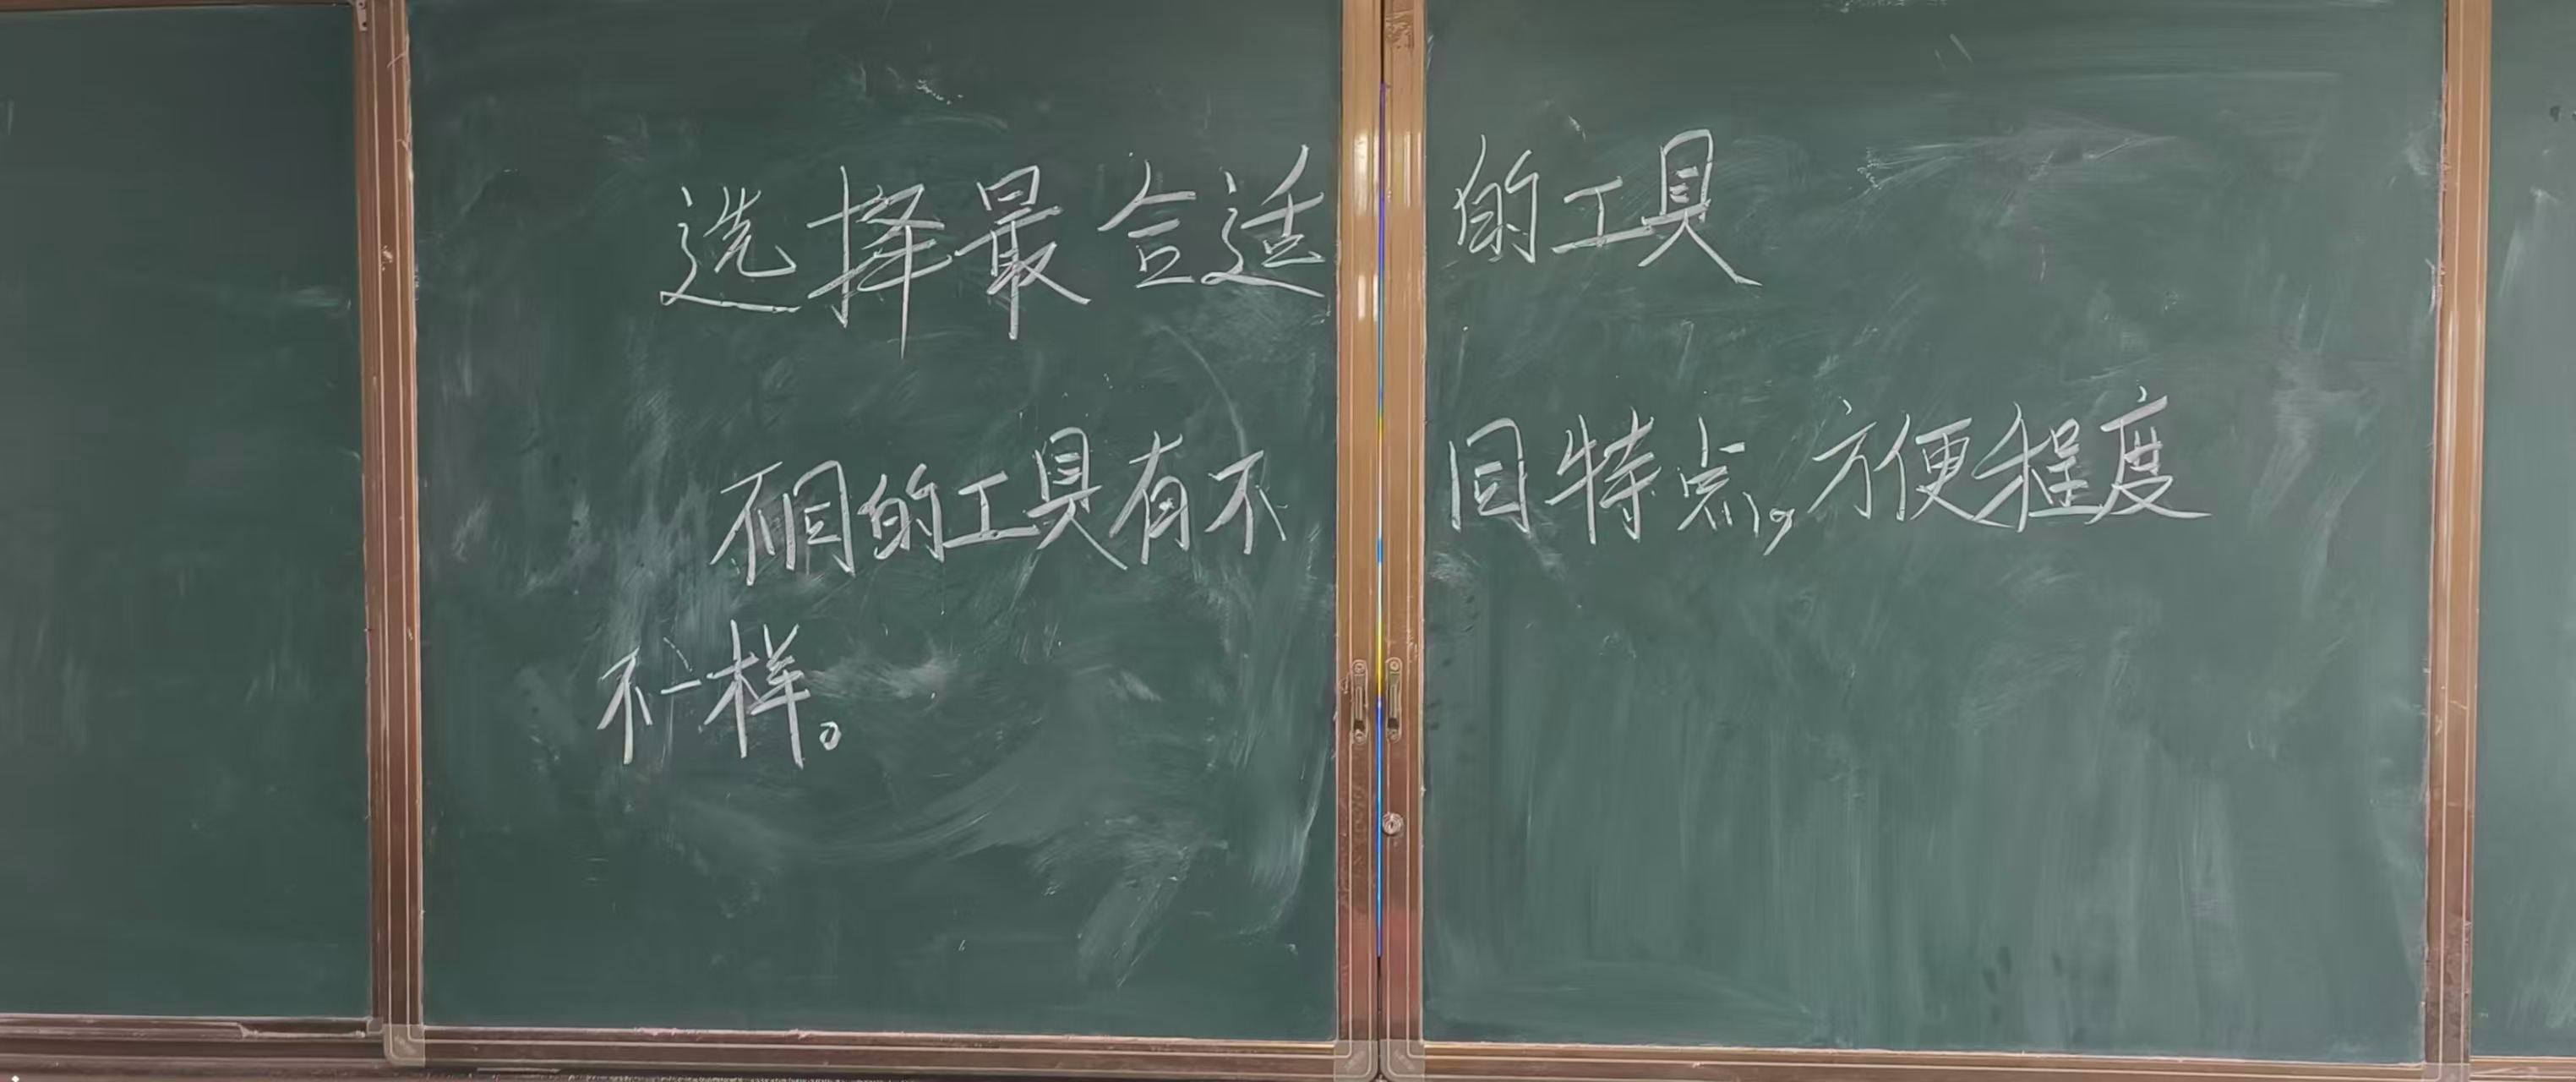 选择最合适的工具
不同的工具有不同特点,方便程度
不一样。